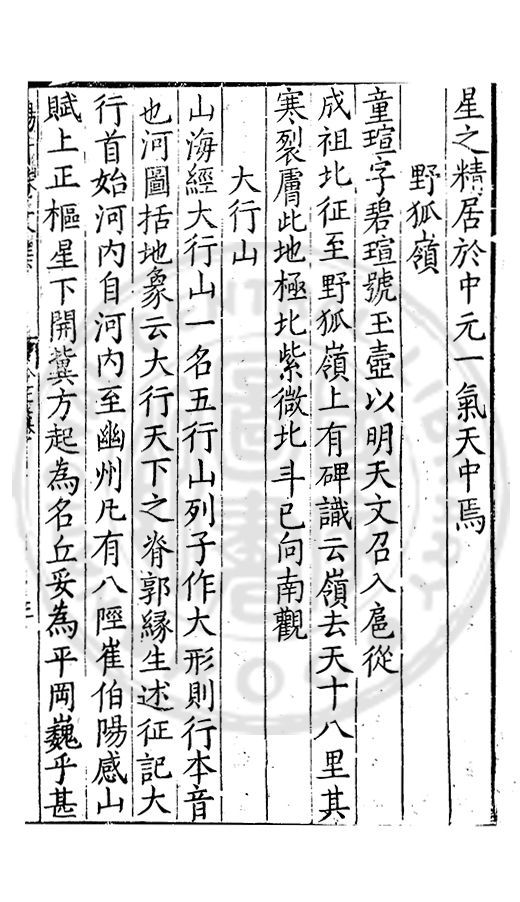 星之精居於中元一氣天中焉
野狐嶺
童瑄字碧瑄號玉壺以明天文召入扈從
成祖北征至野狐嶺上有碑識云嶺去天十八里其
寒裂膚此地極北紫微北斗已向南觀
大行山
山海經大行山一名五行山列子作大形則行本音
也河圖括地象云大行天下之脊郭緣生述征記大
行首始河内自河内至幽州凡有八陘崔伯陽感山
賦上正樞星下開冀方起為名丘妥為平岡巍乎甚